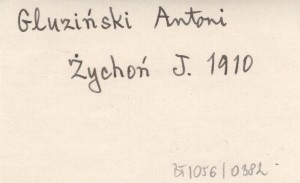 Gluziński Antoni
Żychoń J. 1910
BT1056/0382